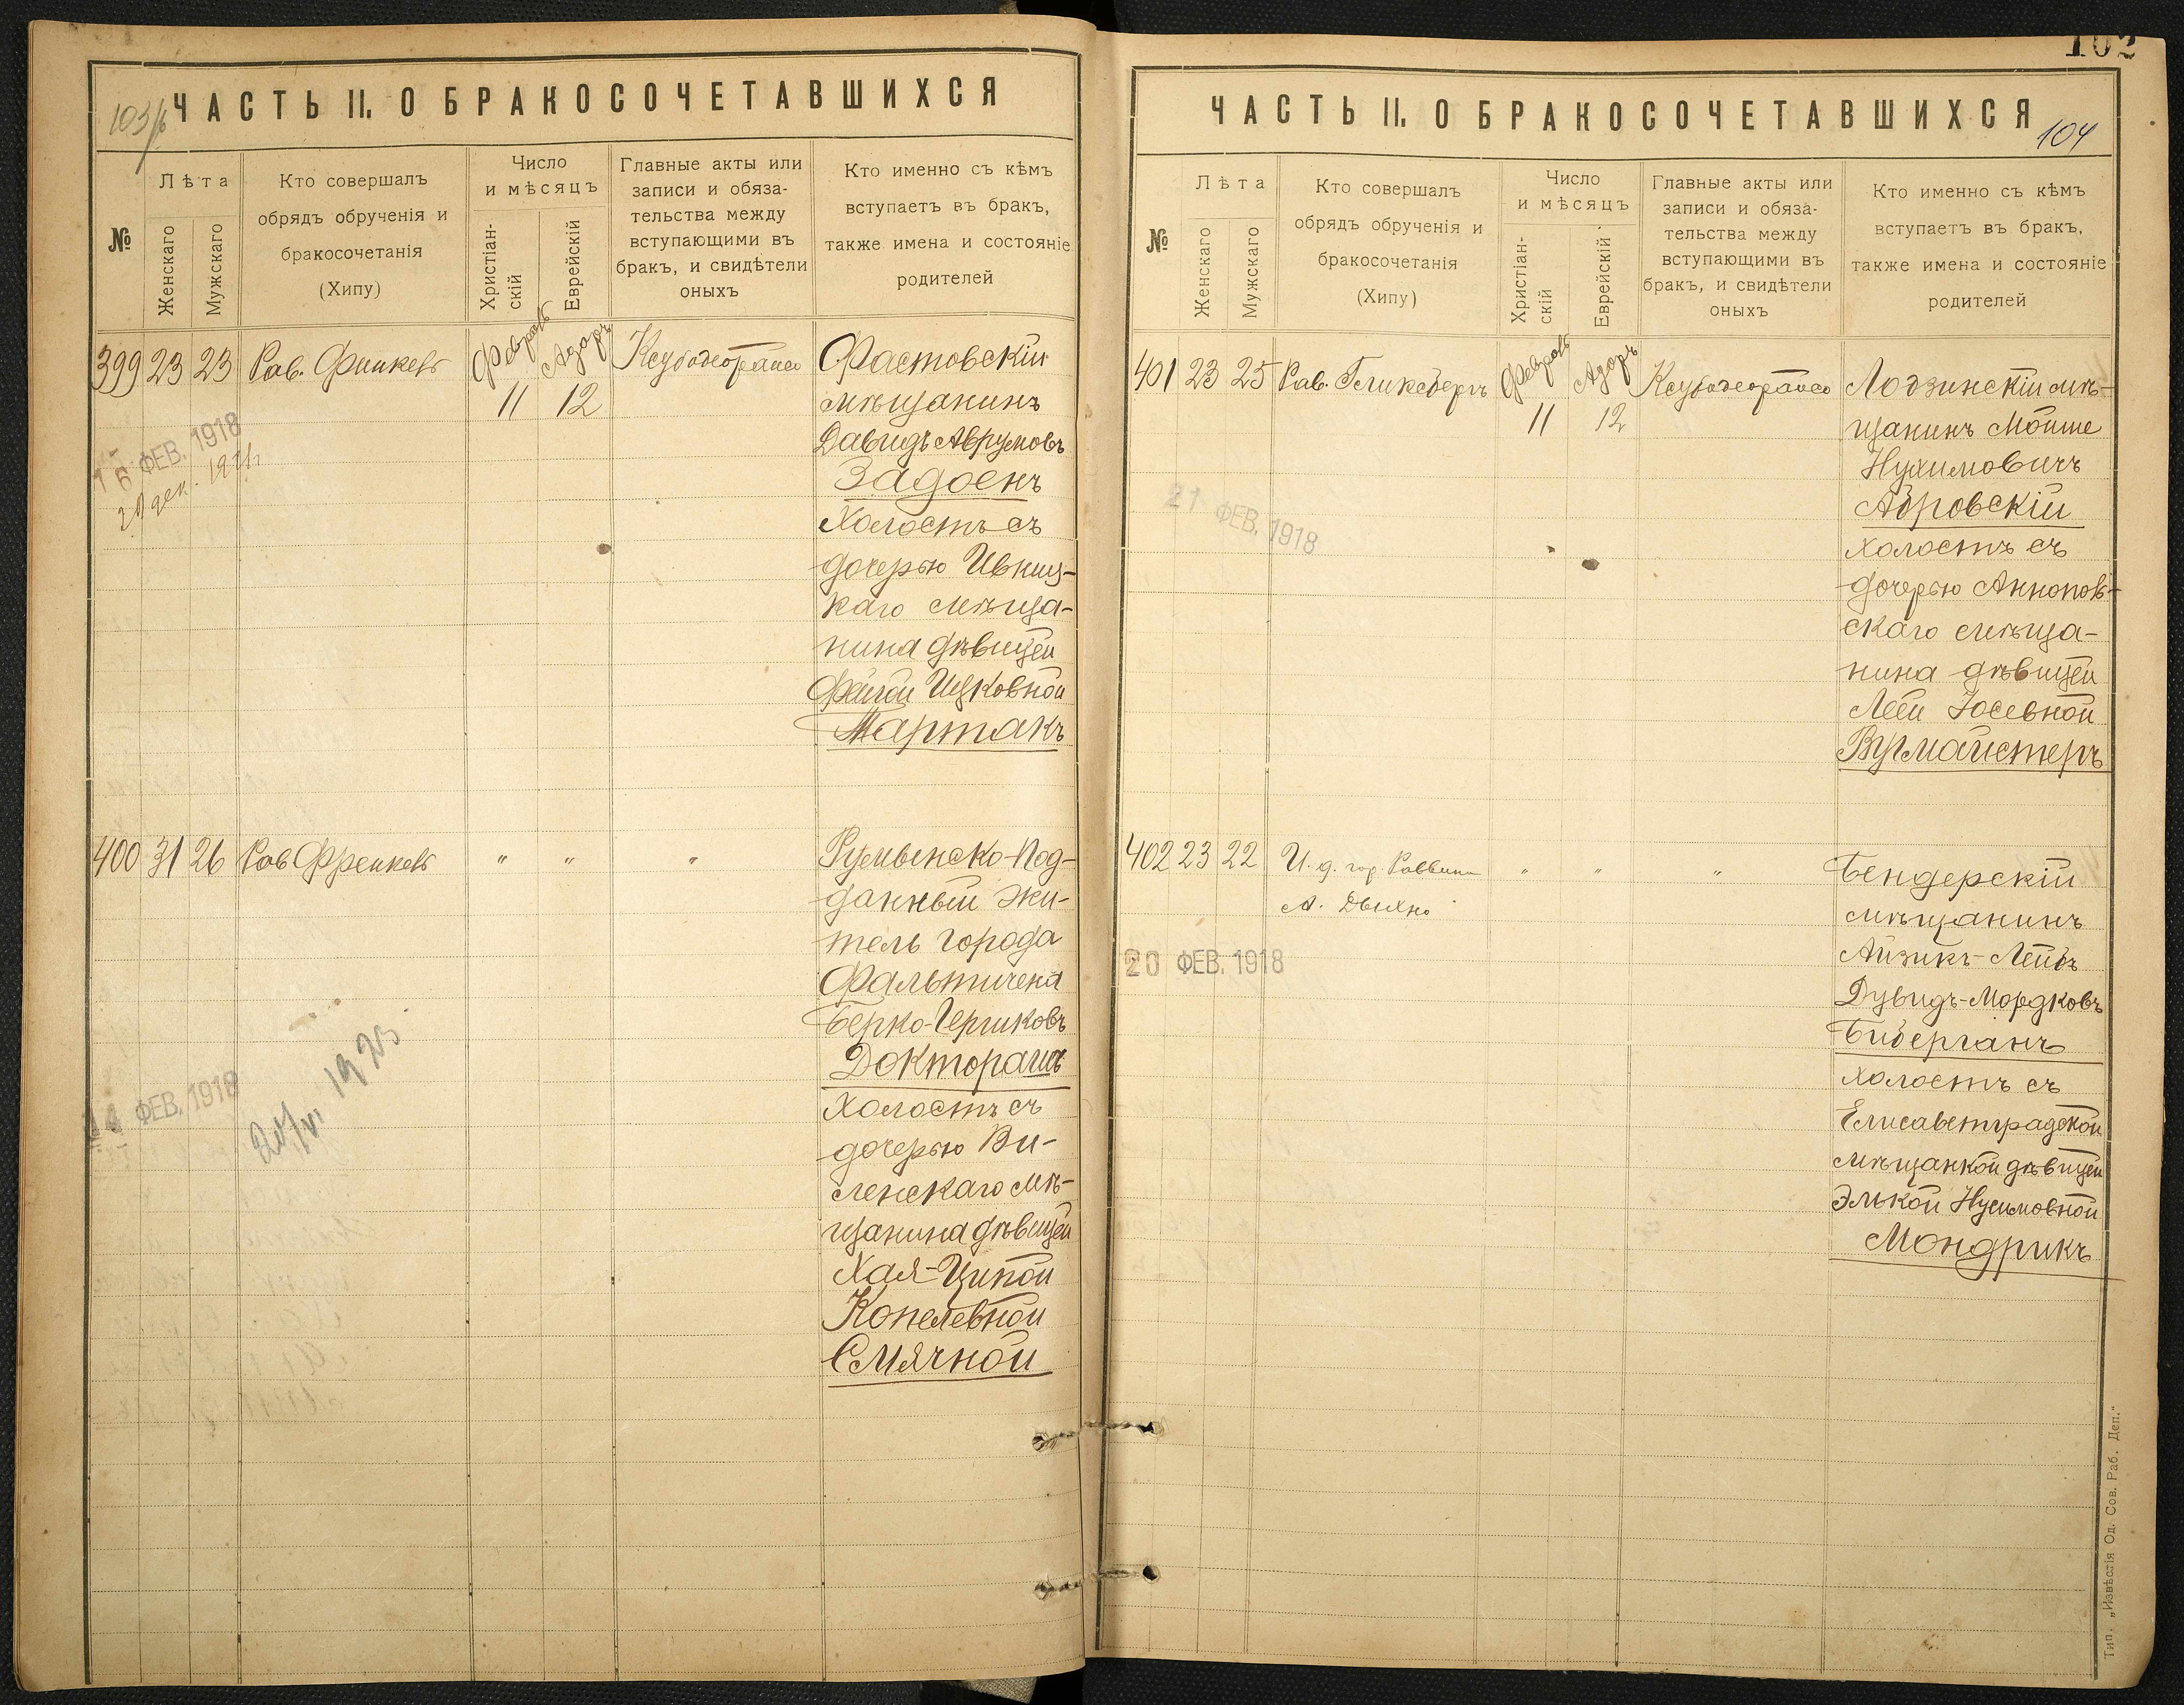 103/б
ЧАСТЬ II. О БРАКОСОЧЕТАВШИХСЯ
№
Лѣта
Женскаго
Мужскаго
Кто совершалъ
обрядъ обрученія и
бракосочетанія
(Хипу)
Число
и мѣсяцъ
Христіан-
скій
Еврейскій
Главные акты или
записи и обяза-
тельства между
вступающими въ
бракъ, и свидѣтели
оныхъ
Кто именно съ кѣмъ
вступаетъ въ бракъ,
также имена и состояніе
родителей
399 23 23 Рав.
Февраль Адаръ
11 12
16 ФЕВ. 1918
Фастовскій
мѣщанинъ
Давидъ Аврумовъ
Задоенъ
Холостъ съ
дочерью Ивниц-
каго мѣща-
нина дѣвицей
Фейгой Ицковной
Тартакъ
400 31 26 Рав Френкель " " "
14 ФЕВ. 1918
1925
Румынско-Под-
данный жи-
тель города
Фальтичена
Берко-Гершковъ
Доктораши
Холостъ съ
дочерью Ви-
ленскаго мѣ-
щанина дѣвицей
Хая-Ципой
Копелевной
Смячной
102
ЧАСТЬ II. О БРАКОСОЧЕТАВШИХСЯ
104
№
Лѣта
Женскаго
Мужскаго
Кто совершалъ
обрядъ обрученія и
бракосочетанія
(Хипу)
Число
и мѣсяцъ
Христіан-
скій
Еврейскій
Главные акты или
записи и обяза-
тельства между
вступающими въ
бракъ, и свидѣтели
оныхъ
Кто именно съ кѣмъ
вступаетъ въ бракъ,
также имена и состояніе
родителей
401 23 25 Рав. Гликсбергъ
Февраль Адаръ
11 12
21 ФЕВ. 1918
Лодзинскій мѣ-
щанинъ Мойше
Нухимовичъ
Абровскій
холостъ съ
дочерью Аннопов-
скаго мѣща-
нина дѣвицей
Леей Іосевной
Вугмайстеръ
402 23 22 И. д. гор Раввина " " "
А. Дыхно
20 ФЕВ. 1918
Бендерскій
мѣщанинъ
Айзикъ-Лейбъ
Дувидъ-Мордковъ
Биберганъ
Холостъ съ
Елисаветградской
мѣщанкой дѣвицей
Элькой Нусимовной
Мондрикъ
Тип. „Извѣстія Од. Сов. Раб. Деп."